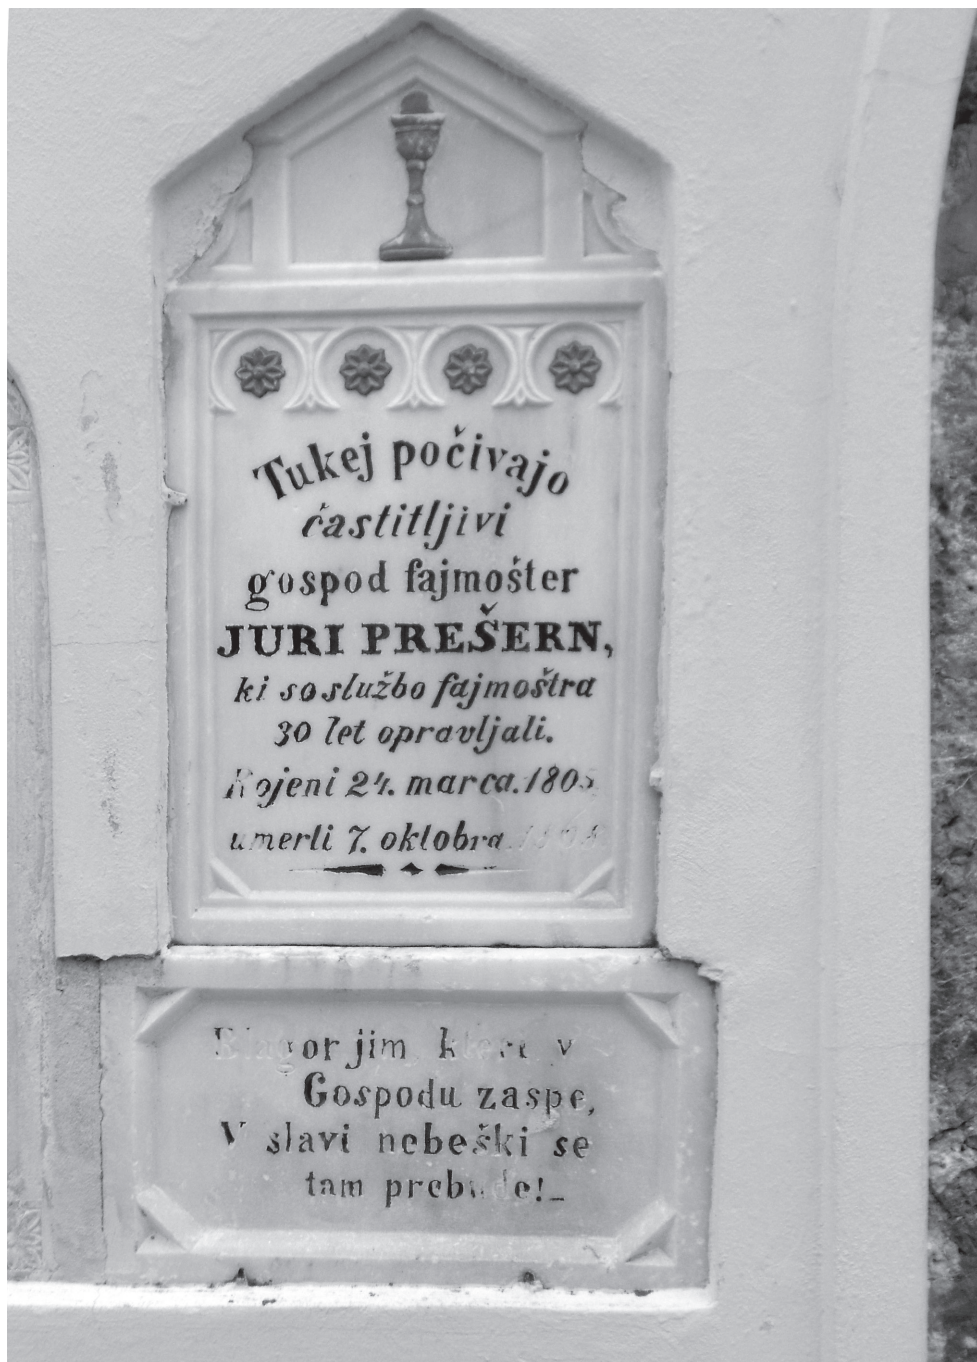 Tukej počivajo
častitljivi
gospod fajmošter
JURI PREŠERN,
ki so službo fajmoštra
30 let opravljali.
Rojeni 24. marca. 1805,
umerli 7. oktobra
Blagor jim kteri v
Gospodu zaspe,
V slavi nebeški se
tam prebude!